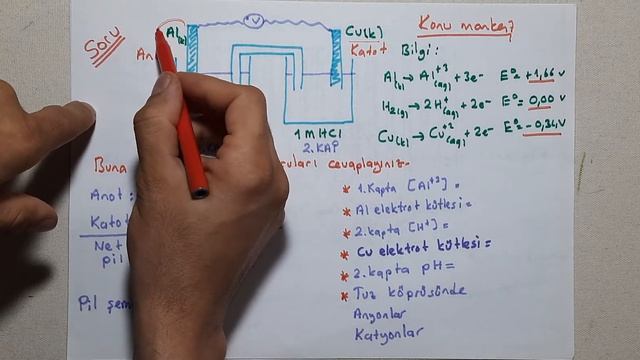 Soru
Al(k)
V
Cu(k)
Katot
An
1 M HCl
2. KAP
Konu manken?
Bilgi:
Al(k) → Al+3(aq) + 3e- E°= +1,66 V
H2(g) → 2H+(aq) + 2e- E°= 0,00 V
Cu(k) → Cu+2(aq) + 2e- E°= -0,34 V
Buna
cevaplayınız-
Anot:
Katot
Net
pil
Pil şem
* 1. Kapta [Al+3] =
* Al elektrot kütlesi =
* 2. kapta [H+] =
* Cu elektrot kütlesi =
* 2. kapta pH =
* Tuz köprüsünde
Anyonlar
Katyonlar